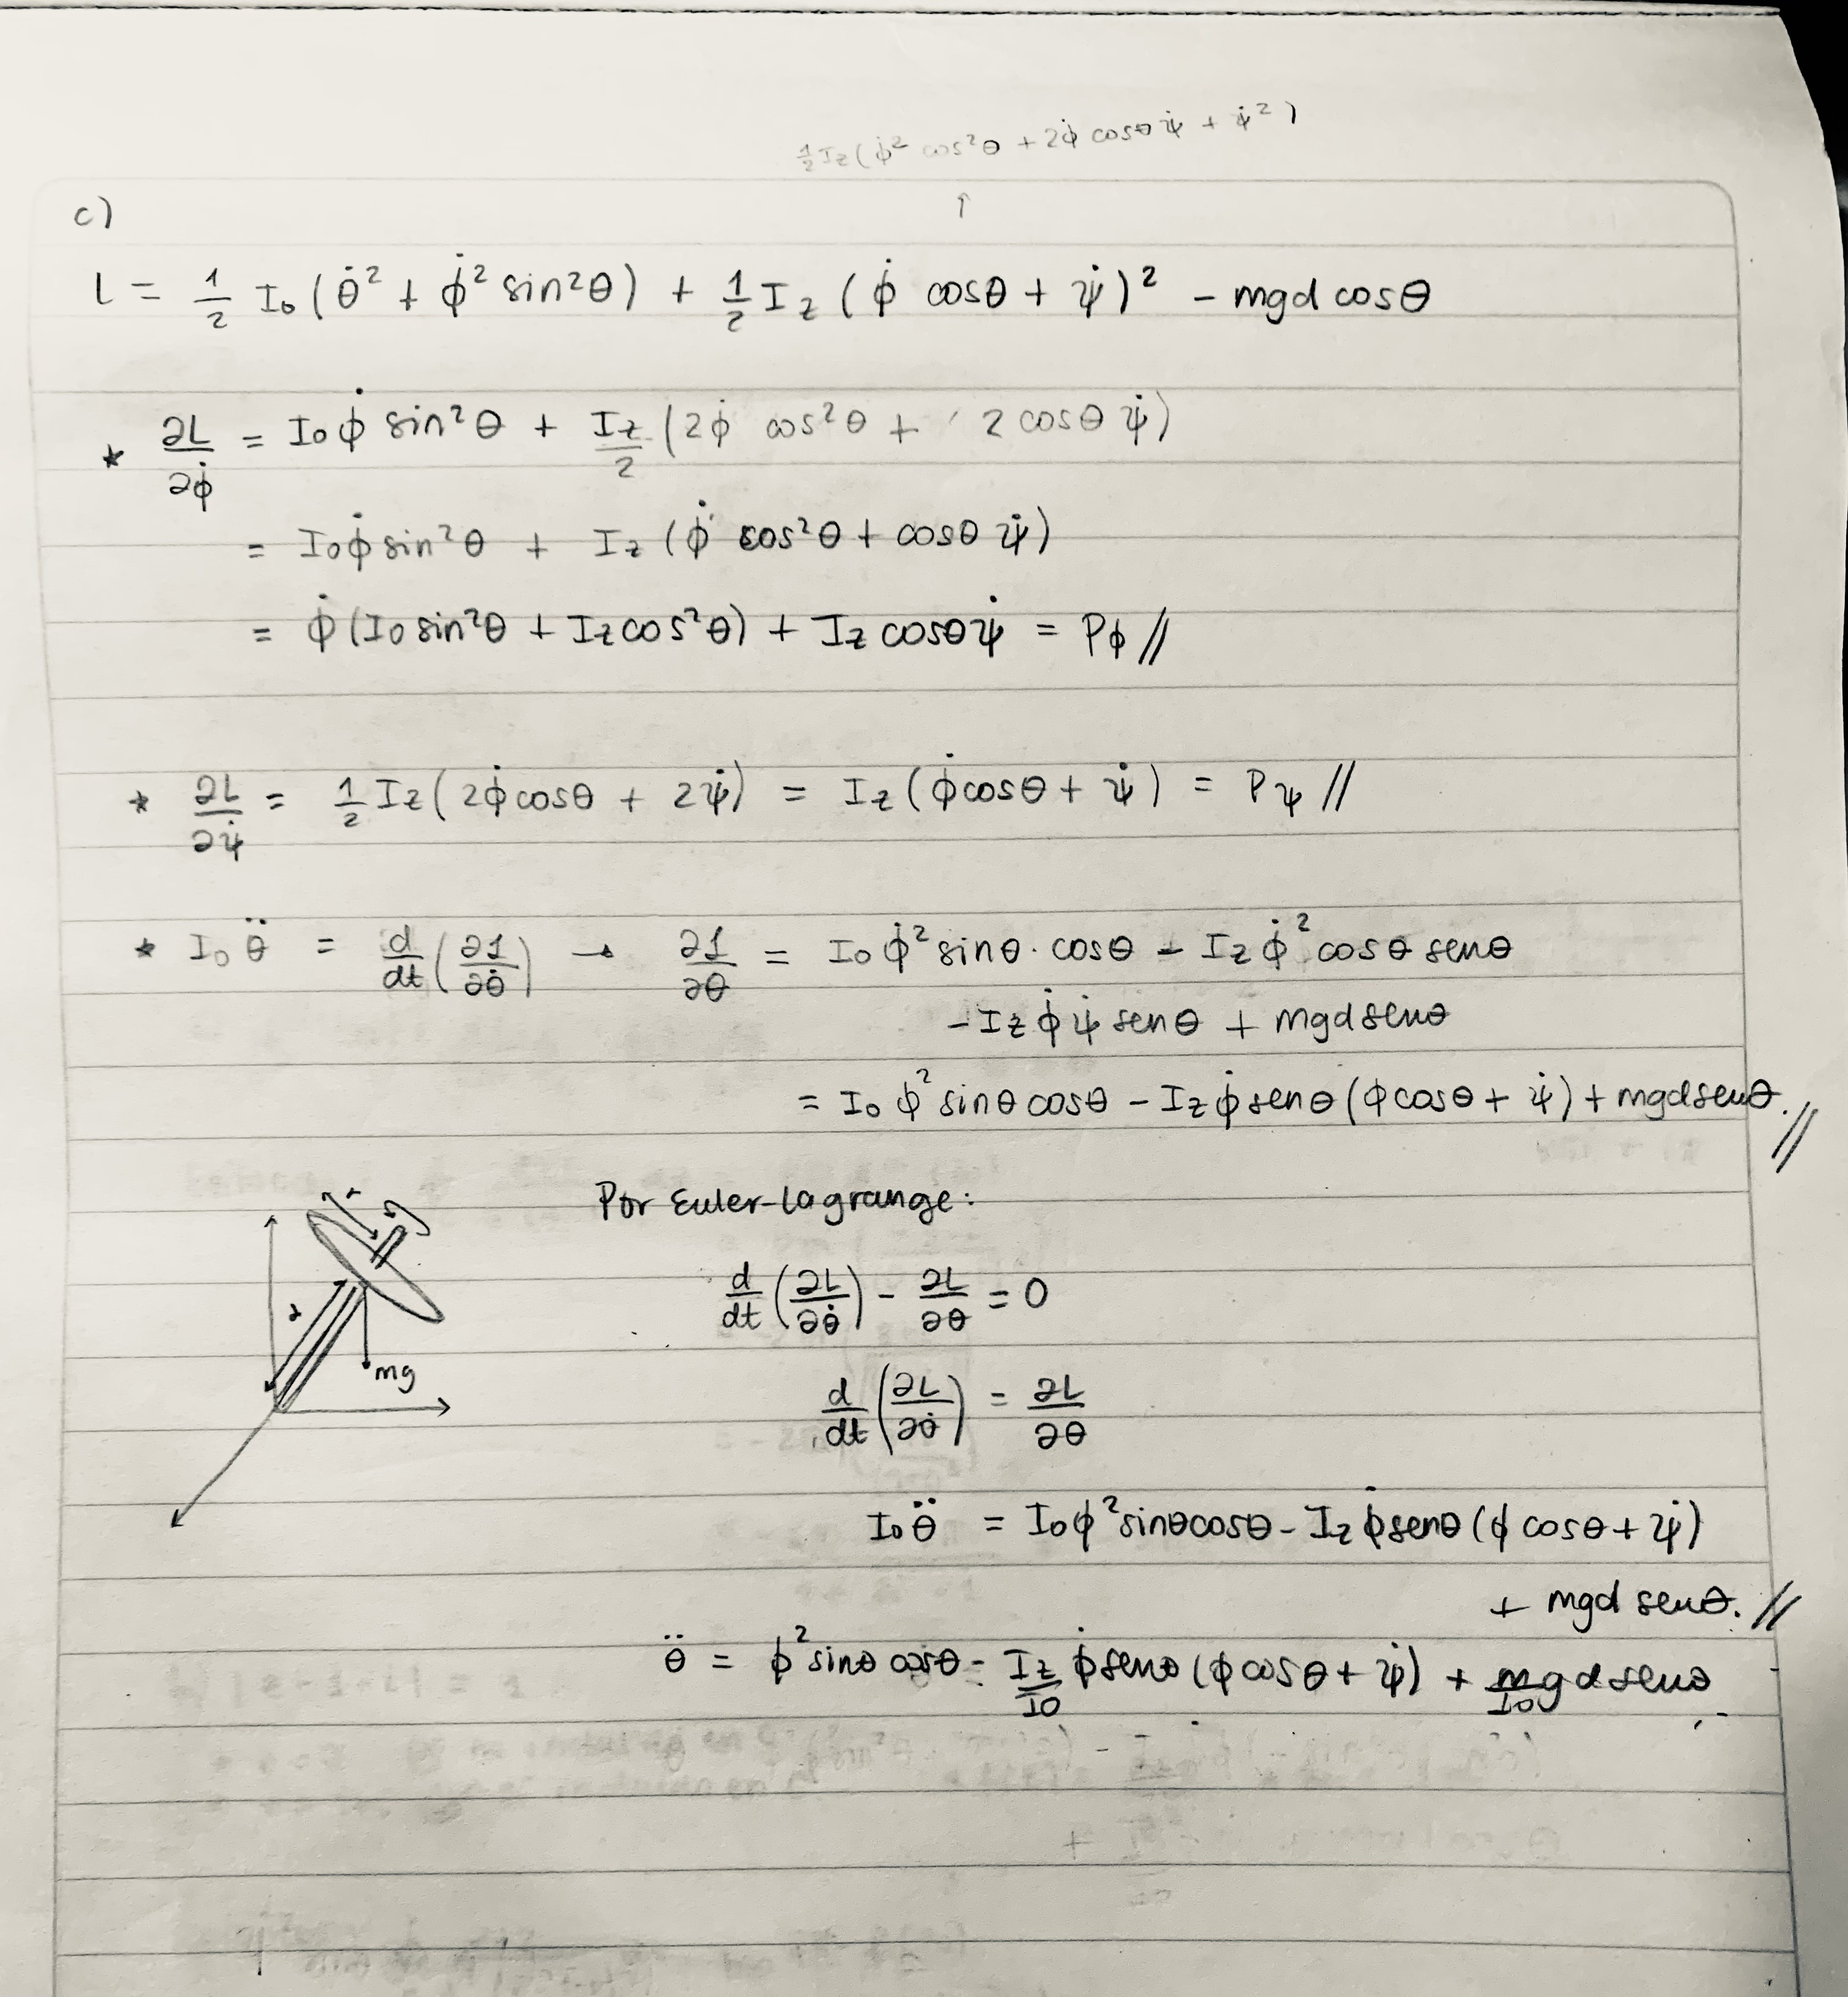 ½Iz(φ̇² cos²θ + 2φ̇ cosθ ψ̇ + ψ̇²)
↑
c)
L = 1/2 I₀(θ̇² + φ̇² sin²θ) + 1/2 Iz (φ̇ cosθ + ψ̇)² - mgd cosθ
* ∂L/∂φ̇ = I₀φ̇ sin²θ + Iz/2 (2φ̇ cos²θ + 2 cosθ ψ̇)
= I₀φ̇ sin²θ + Iz (φ̇ cos²θ + cosθ ψ̇)
= φ̇ (I₀ sin²θ + Iz cos²θ) + Iz cosθ ψ̇ = Pφ //
* ∂L/∂ψ̇ = 1/2 Iz (2φ̇ cosθ + 2ψ̇) = Iz (φ̇ cosθ + ψ̇) = Pψ //
* I₀ θ̈ = d/dt (∂L/∂θ̇) → ∂L/∂θ = I₀ φ̇² sinθ · cosθ - Iz φ̇² cosθ senθ
- Iz φ̇ ψ̇ senθ + mgd senθ
= I₀ φ² sinθ cosθ - Iz φ̇ senθ (φ cosθ + ψ̇) + mgd senθ. //
Por Euler-Lagrange:
r
d/dt (∂L/∂θ̇) - ∂L/∂θ = 0
d
mg
d/dt (∂L/∂θ̇) = ∂L/∂θ
I₀ θ̈ = I₀ φ² sinθ cosθ - Iz φ̇ senθ (φ cosθ + ψ̇)
+ mgd senθ. //
θ̈ = φ² sinθ cosθ - Iz/I₀ φ̇ senθ (φ cosθ + ψ̇) + m/I₀ g d senθ